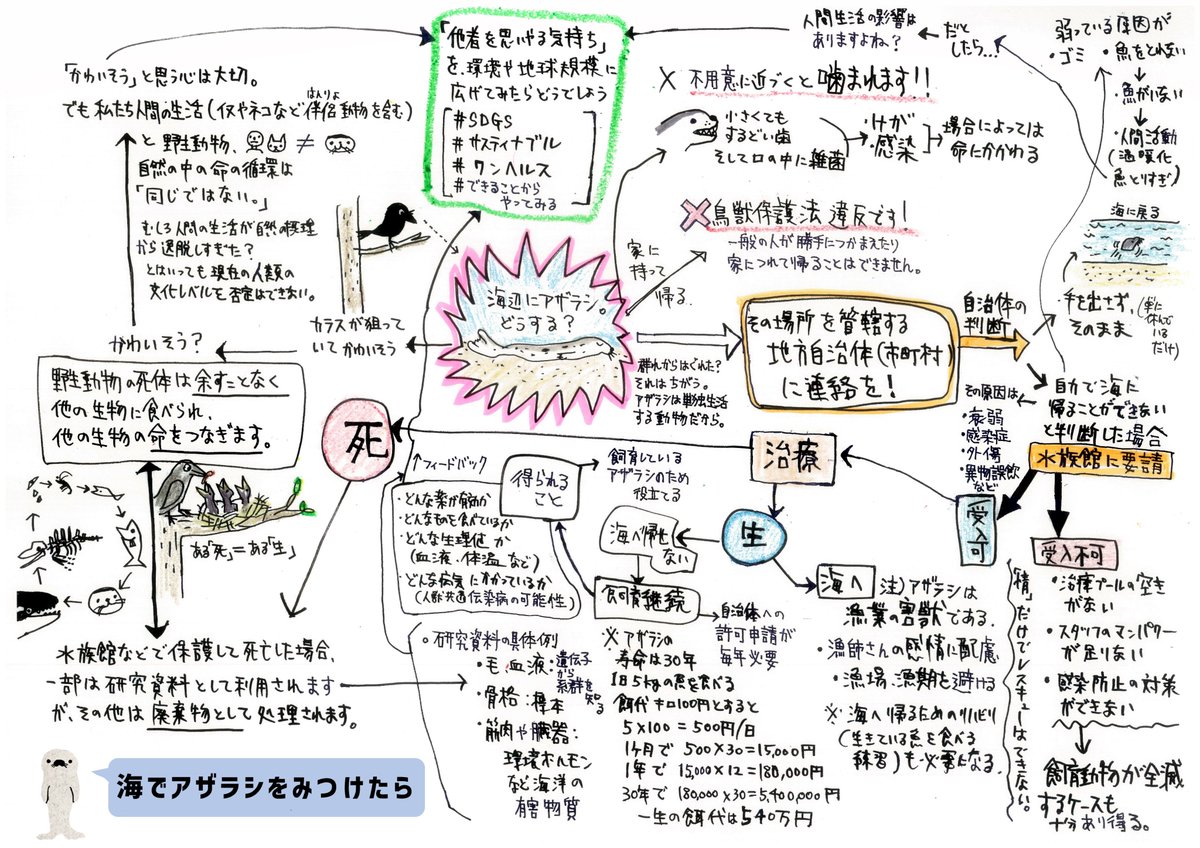 「かわいそう」と思う心は大切。
でも私たち人間の生活(イヌやネコなど伴侶動物を含む)
はんりょ
と野生動物、
≠
自然の中の命の循環は
「同じではない。」
むしろ人間の生活が自然の摂理
から逸脱しすぎた?
とはいっても現在の人類の
文化レベルを否定はできない。
かわいそう?
カラスが狙って
いてかわいそう
野生動物の死体は余すことなく
他の生物に食べられ、
他の生物の命をつなぎます。
ある「死」=ある「生」
水族館などで保護して死亡した場合、
一部は研究資料として利用されます
が、その他は廃棄物として処理されます。
海でアザラシをみつけたら
「他者を思いやる気持ち」
を、環境や地球規模に
広げてみたらどうでしょう
#SDGS
#サスティナブル
#ワンヘルス
#できることから
やってみる
海辺にアザラシ。
どうする?
群れからはぐれた?
それはちがう。
アザラシは単独生活
する動物だから。
家に
持って
帰る
人間生活の影響は
ありますよね?
だと
したら…?
×不用意に近づくと噛まれます!!
小さくても
するどい歯
そして口の中に雑菌
・けが
・感染
場合によっては
命にかかわる
×鳥獣保護法違反です!
一般の人が勝手につかまえたり
家につれて帰ることはできません。
弱っている原因が
・ゴミ
・魚をとれない
・魚がいない
・人間活動
(温暖化
魚とりすぎ)
海に戻る
その場所を管轄する
地方自治体(市町村)
に連絡を!
自治体の
判断
手を出さず、
そのまま
(単に
休んでいる
だけ)
自力で海に
帰ることができない
と判断した場合
その原因は
・衰弱
・感染症
・外傷
・異物誤飲
など
水族館に要請
受入可
受入不可
・治療プールの空き
がない
・スタッフのマンパワー
が足りない
・感染防止の対策
ができない
飼育動物が全滅
するケースも
十分あり得る。
「情」だけでレスキューはできない。
治療
死
生
海へ
注)アザラシは
漁業の害獣である。
・漁師さんの感情に配慮
・漁場、漁期を避ける
※海へ帰るためのリハビリ
(生きている魚を食べる
練習)も必要になる。
海へ帰せ
ない
飼育継続
自治体への
許可申請が
毎年必要
※アザラシの
寿命は30年
1日5kgの魚を食べる
餌代キロ100円とすると
5×100=500円/日
1ヶ月で500×30=15,000円
1年で15,000×12=180,000円
30年で180,000×30=5,400,000円
一生の餌代は540万円
得られる
こと
飼育している
アザラシのため
役立てる
フィードバック
・どんな薬が効か
・どんなものを食べているか
・どんな生理値か
(血液、体温など)
・どんな病気にかかっているか
(人獣共通伝染病の可能性)
○研究資料の具体例
・毛、血液
・遺伝子
から
系群を
知る
・骨格:標本
・筋肉や臓器:
環境ホルモン
など海洋の
有害物質